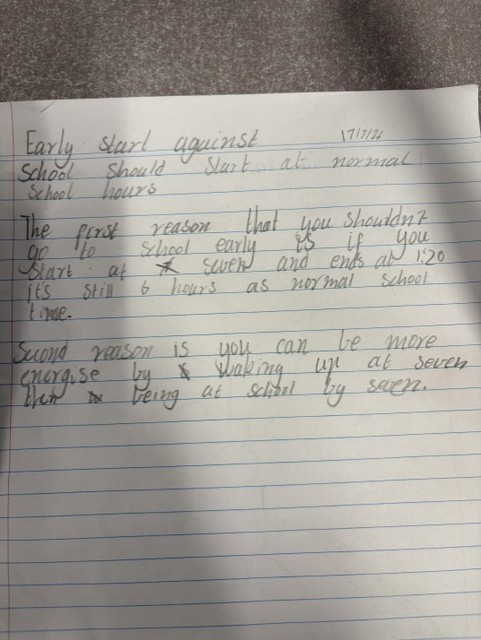 Early start against 17/7/21
School Should Start at normal
School hours
The first reason that you shouldn't
go to school early is if you
start at seven and ends at 1:20
it's still 6 hours as normal school
time.
Second reason is you can be more
energise by waking up at seven
then being at school by seven.